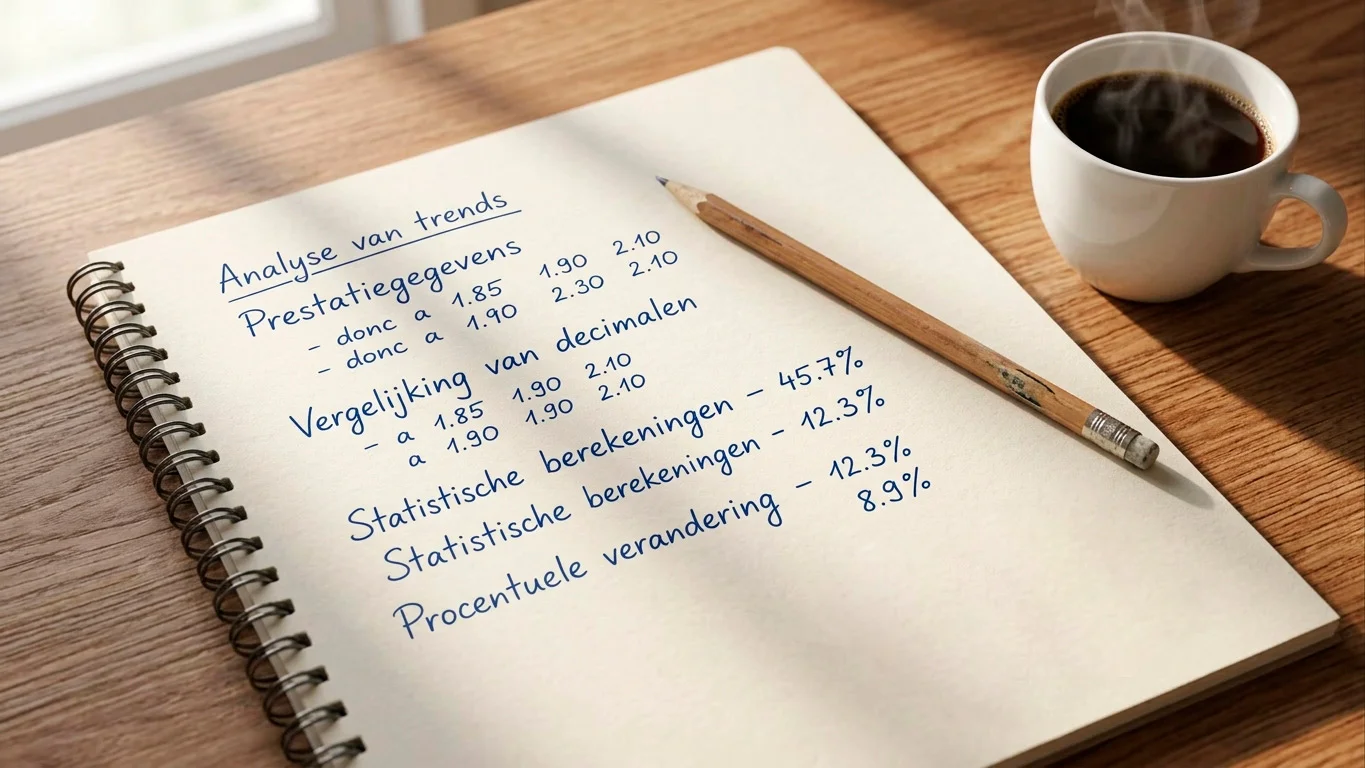 Analyse van trends
Prestatiegegevens
- donc a 1.85 1.90 2.10
- donc a 1.90 2.30 2.10
Vergelijking van decimalen
- a 1.85 1.90 2.10
a 1.90 1.90 2.10
Statistische berekeningen - 45.7%
Statistische berekeningen - 12.3%
Procentuele verandering - 12.3%
8.9%